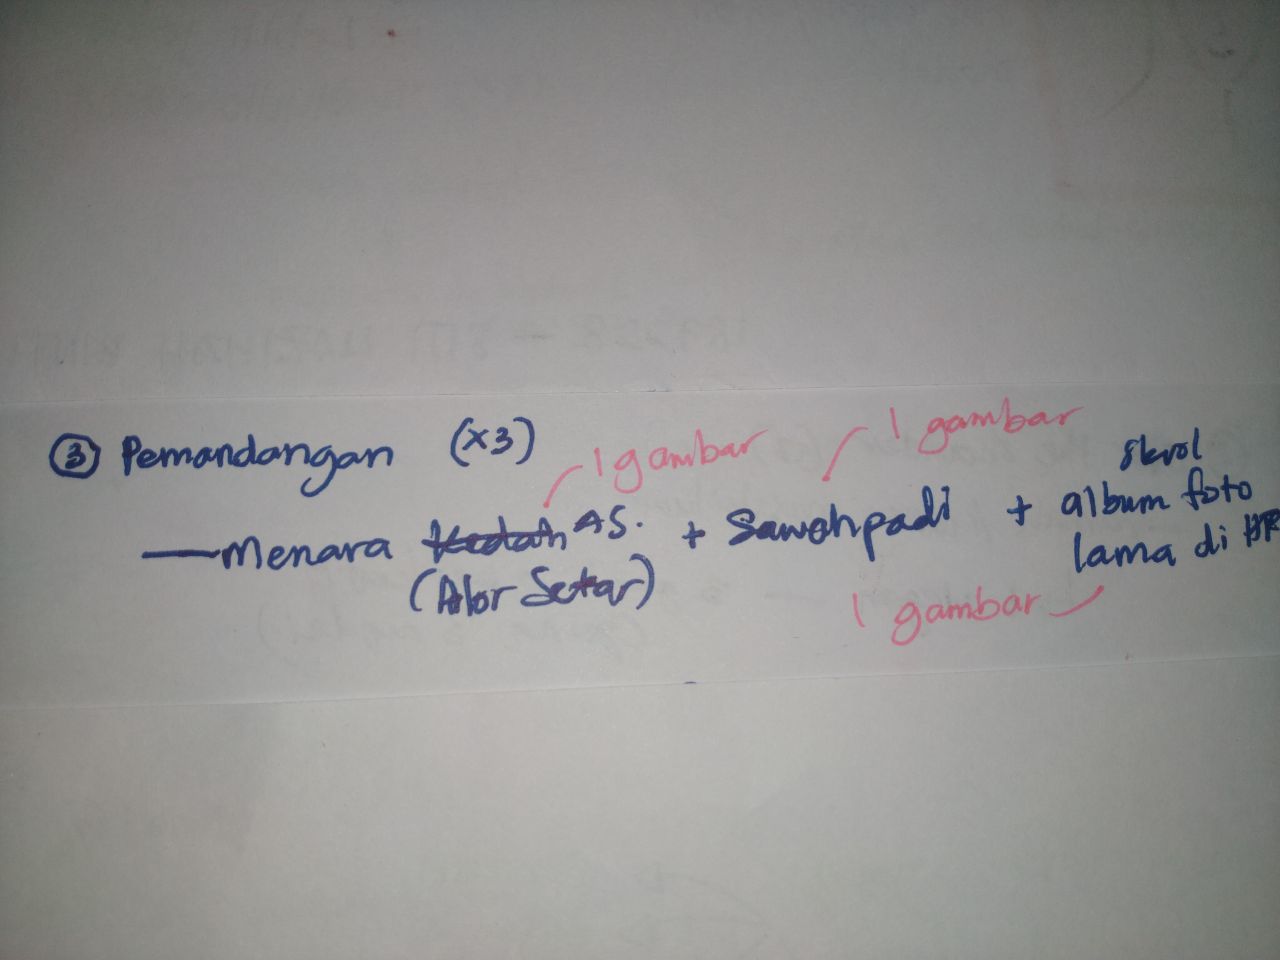 ③ Pemandangan (x3)
1 gambar
1 gambar
— Menara Kedah AS. + Sawah padi + skrol album foto
(Alor Setar)
lama di HP
1 gambar